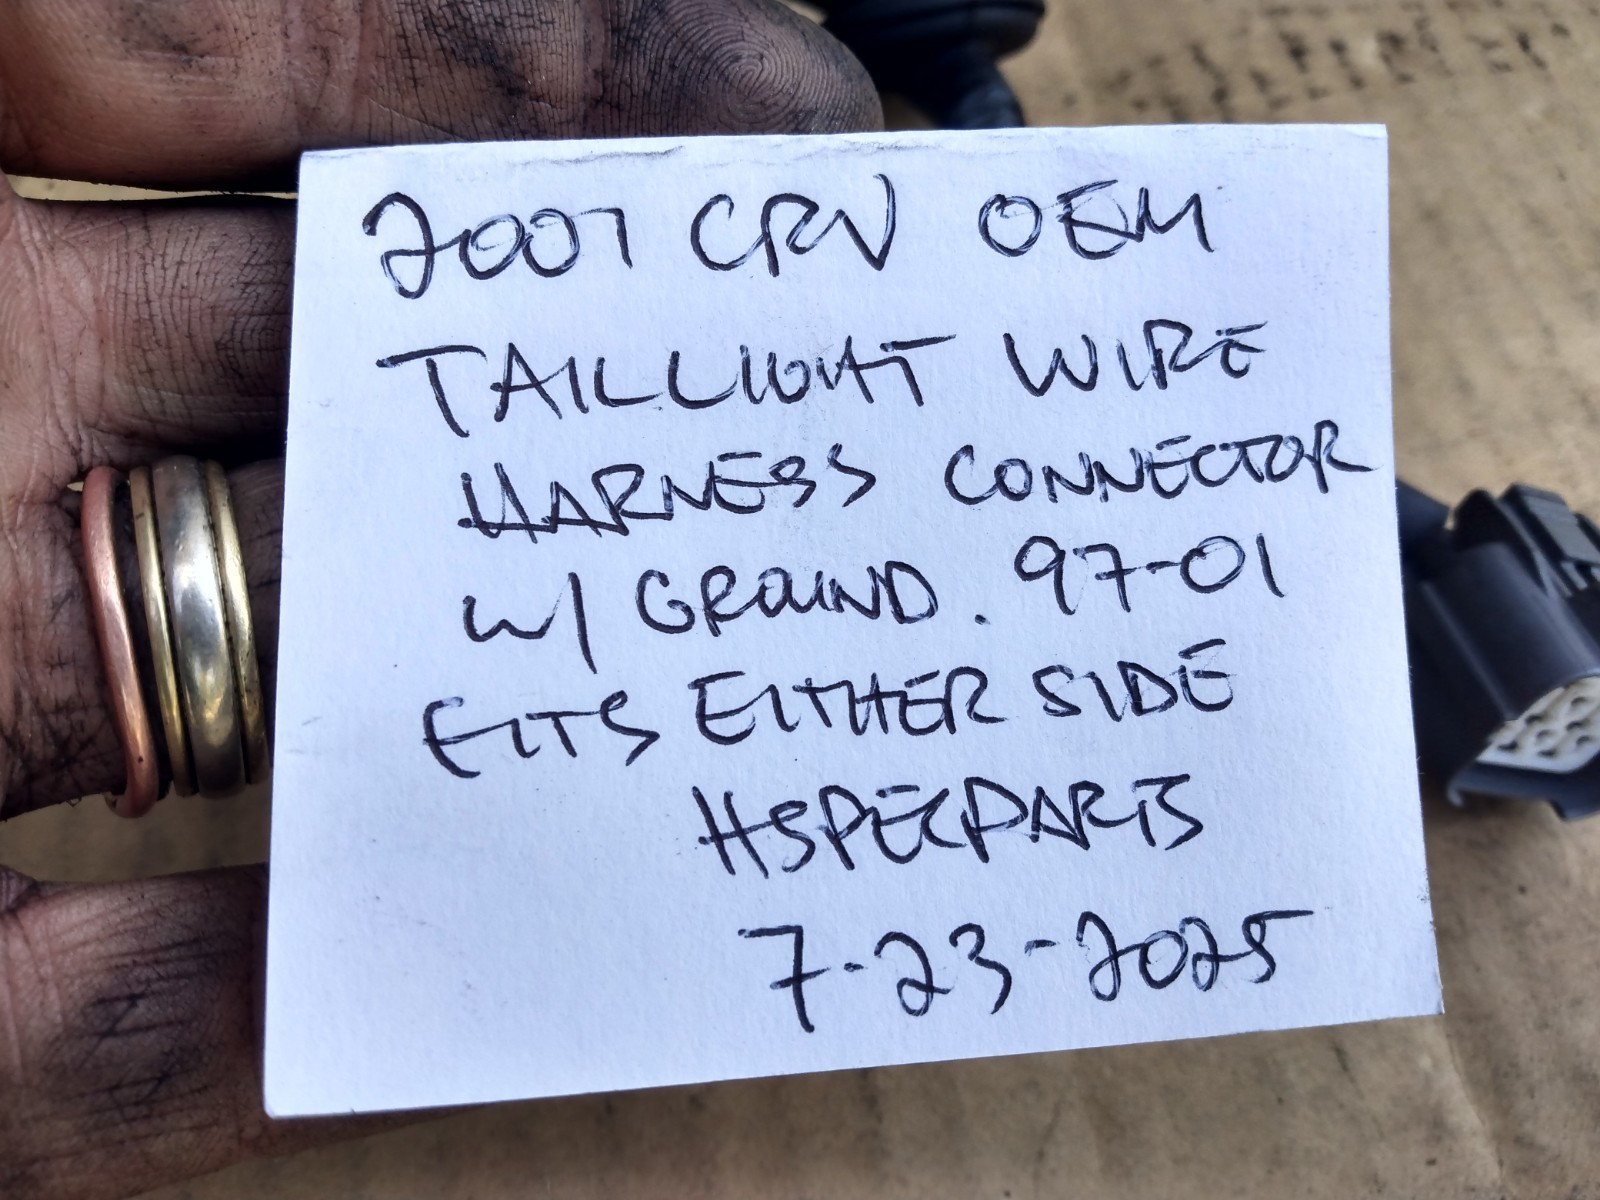 2001 CRV OEM
TAILLIGHT WIRE
HARNESS CONNECTOR
W/ GROUND. 97-01
FITS EITHER SIDE
HSPECPARTS
7-23-2025